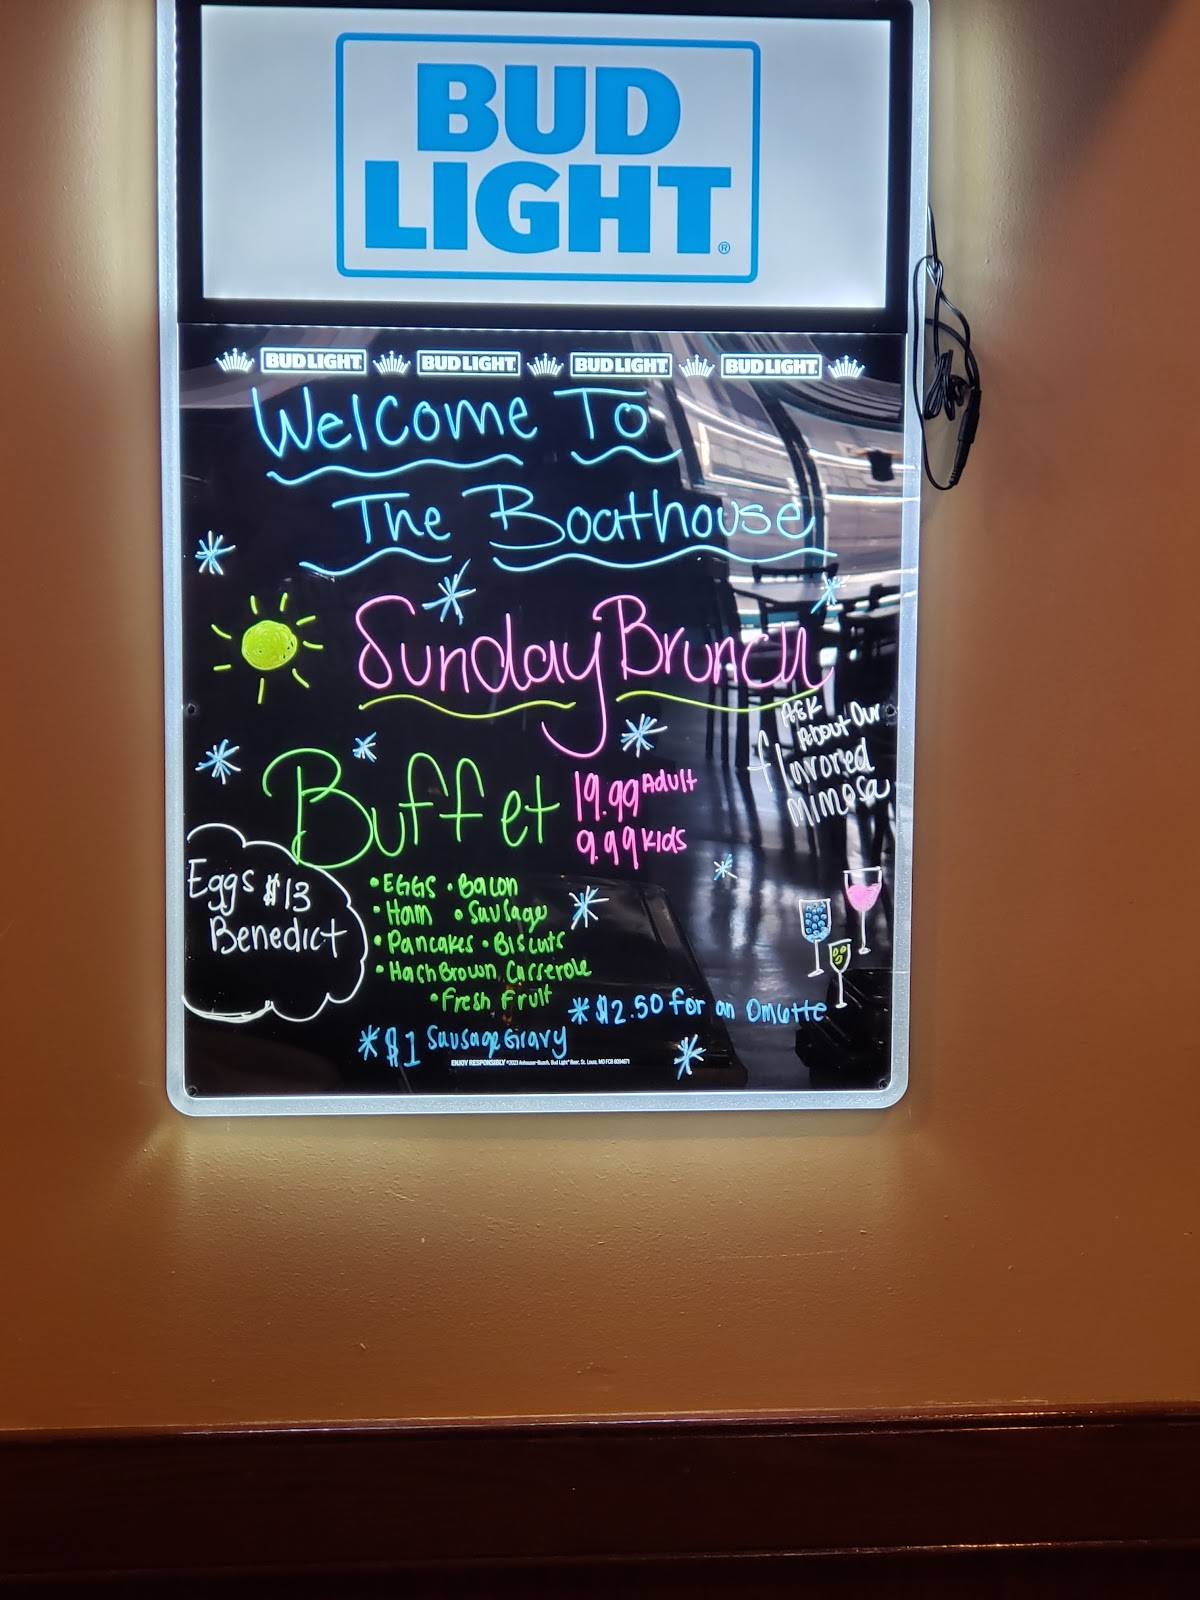 BUD
LIGHT®
BUD LIGHT. BUD LIGHT. BUD LIGHT. BUD LIGHT.
Welcome To
The Boathouse
Sunday Brunch
Ask
About Our
flavored
mimosa
Buffet 19.99 Adult
9.99 Kids
Eggs $13
Benedict
• EGGS • Bacon
• Ham • Sausage
• Pancakes • Biscuits
• HashBrown Casserole
• Fresh Fruit
* $2.50 for an Omlette
* $1 Sausage Gravy
ENJOY RESPONSIBLY ©2023 Anheuser-Busch, Bud Light® Beer, St. Louis, MO